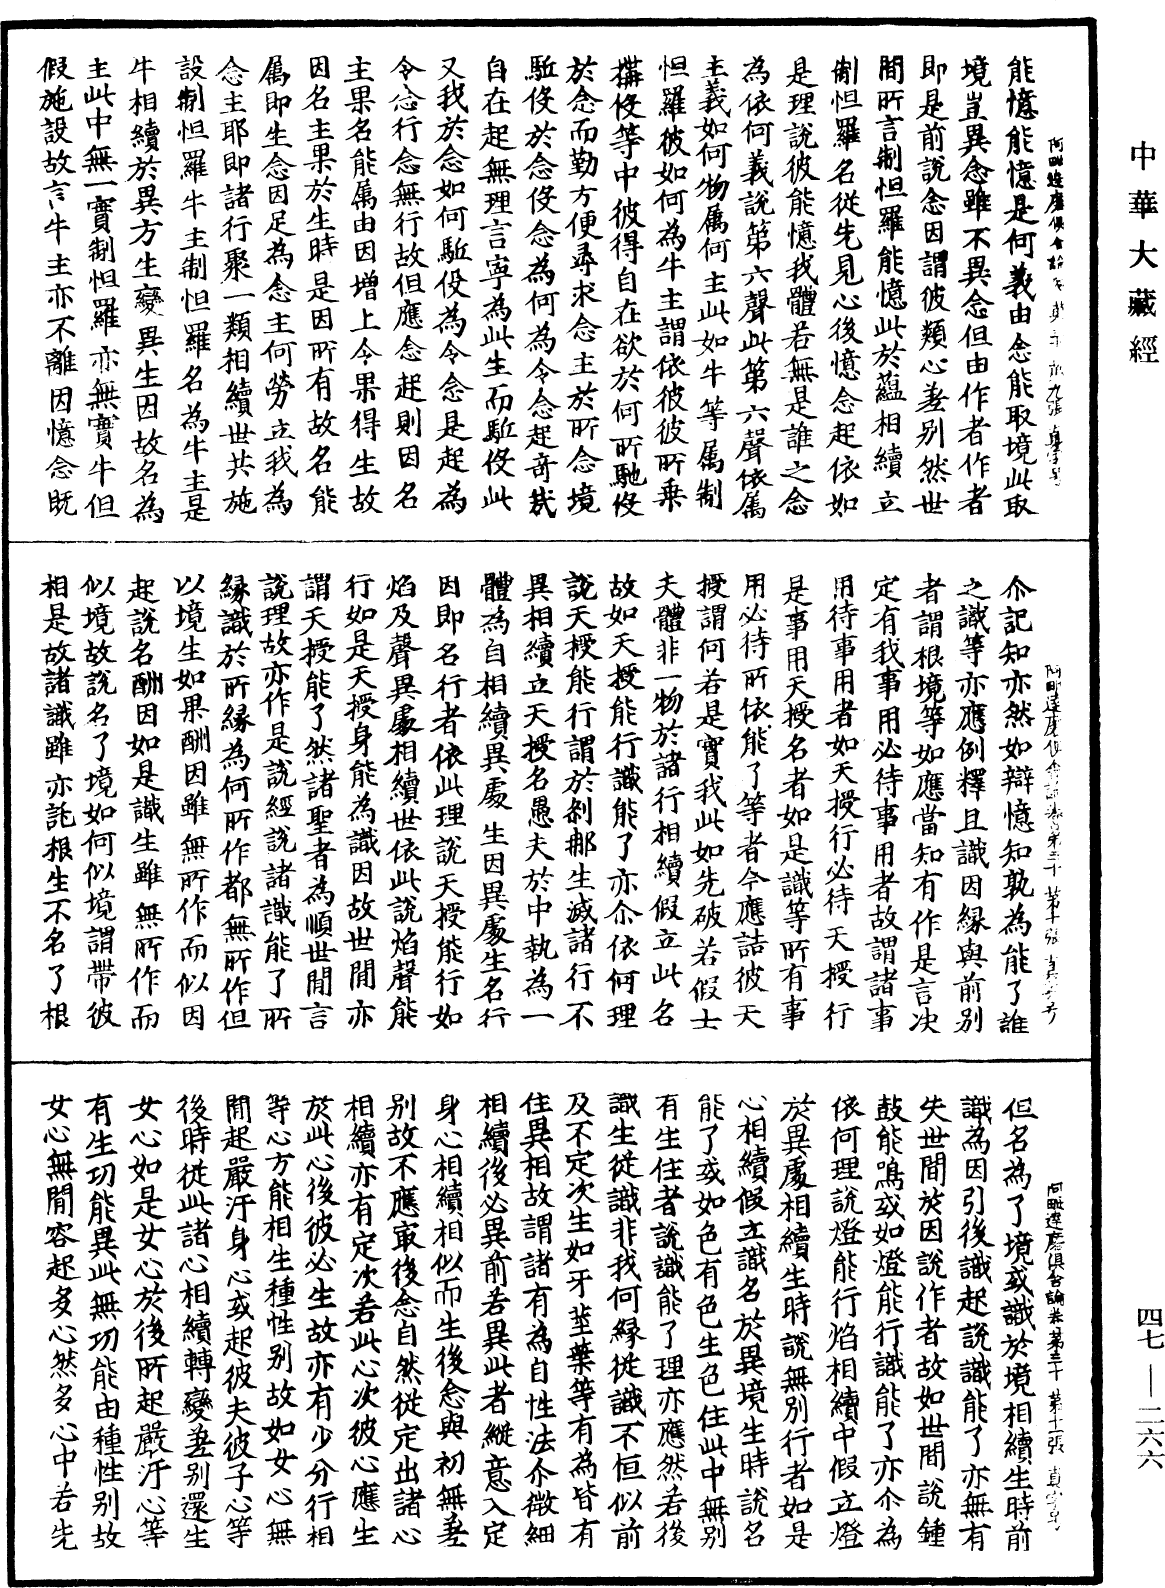 中華大藏經
能憶能憶是何義由念能取境此取
境豈異念雖不異念但由作者作者
即是前說念因謂彼類心差別然世
間所言制怛羅能憶此於蘊相續立
制怛羅名從先見心後憶念起依如
是理說彼能憶我體若無是誰之念
為依何義說第六聲此第六聲依屬
主義如何物屬何主此如牛等屬制
怛羅彼如何為牛主謂依彼彼所乘
構役等中彼得自在欲於何所馳役
於念而勤方便尋求念主於所念境
駈役於念役念為何為令念起奇哉
自在起無理言寧為此生而駈役此
又我於念如何駈役為令念是起為
令念行念無行故但應念起則因名
主果名能屬由因增上令果得生故
因名主果於生時是因所有故名能
屬即生念因足為念主何勞立我為
念主耶即諸行聚一類相續世共施
設制怛羅牛主制怛羅名為牛主是
牛相續於異方生變異生因故名為
主此中無一實制怛羅亦無實牛但
假施設故言牛主亦不離因憶念既
尒記知亦然如辯憶知孰為能了誰
之識等亦應例釋且識因緣與前別
者謂根境等如應當知有作是言決
定有我事用必待事用者故謂諸事
用待事用者如天授行必待天授行
是事用天授名者如是識等所有事
用必待所依能了等者今應詰彼天
授謂何若是實我此如先破若假士
夫體非一物於諸行相續假立此名
故如天授能行識能了亦尒依何理
說天授能行謂於剎那生滅諸行不
異相續立天授名愚夫於中執為一
體為自相續異處生因異處生名行
因即名行者依此理說天授能行如
焰及聲異處相續世依此說焰聲能
行如是天授身能為識因故世間亦
謂天授能了然諸聖者為順世間言
說理故亦作是說經說諸識能了所
緣識於所緣為何所作都無所作但
以境生如果酬因雖無所作而似因
起說名酬因如是識生雖無所作而
似境故說名了境如何似境謂帶彼
相是故諸識雖亦託根生不名了根
但名為了境或識於境相續生時前
識為因引後識起說識能了亦無有
失世間於因說作者故如世間說鍾
鼓能鳴或如燈能行識能了亦尒為
依何理說燈能行焰相續中假立燈
於異處相續生時說無別行者如是
心相續假立識名於異境生時說名
能了或如色有色生色住此中無別
有生住者說識能了理亦應然若後
識生從識非我何緣從識不恒似前
及不定次生如牙莖葉等有為皆有
住異相故謂諸有為自性法尒微細
相續後必異前若異此者縱意入定
身心相續相似而生後念與初無差
別故不應冣後念自然從定出諸心
相續亦有定次若此心次彼心應生
於此心後彼必生故亦有少分行相
等心方能相生種性別故如女心無
間起嚴汙身心或起彼夫彼子心等
後時從此諸心相續轉變差別還生
女心如是女心於後所起嚴汙心等
有生功能異此無功能由種性別故
女心無間容起多心然多心中若先
四七—二六六